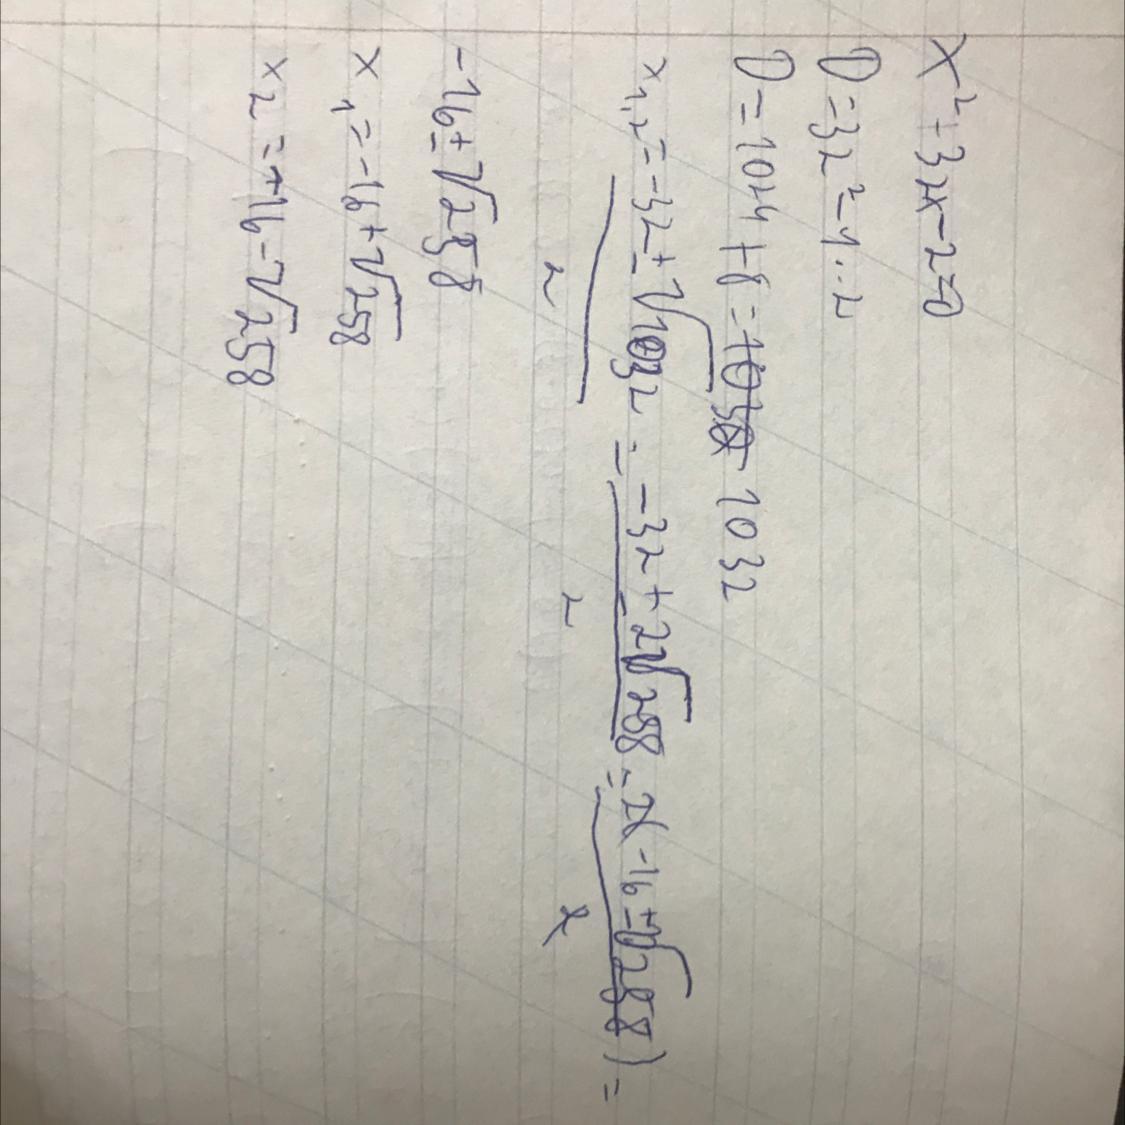 x²+32x-2=0
D=32²-4·-2
D=1024+8=1032
x₁,₂=-32±√1032/2=-32±2√258/2=2(-16±√258)/2=
-16±√258
x₁=-16+√258
x₂=-16-√258